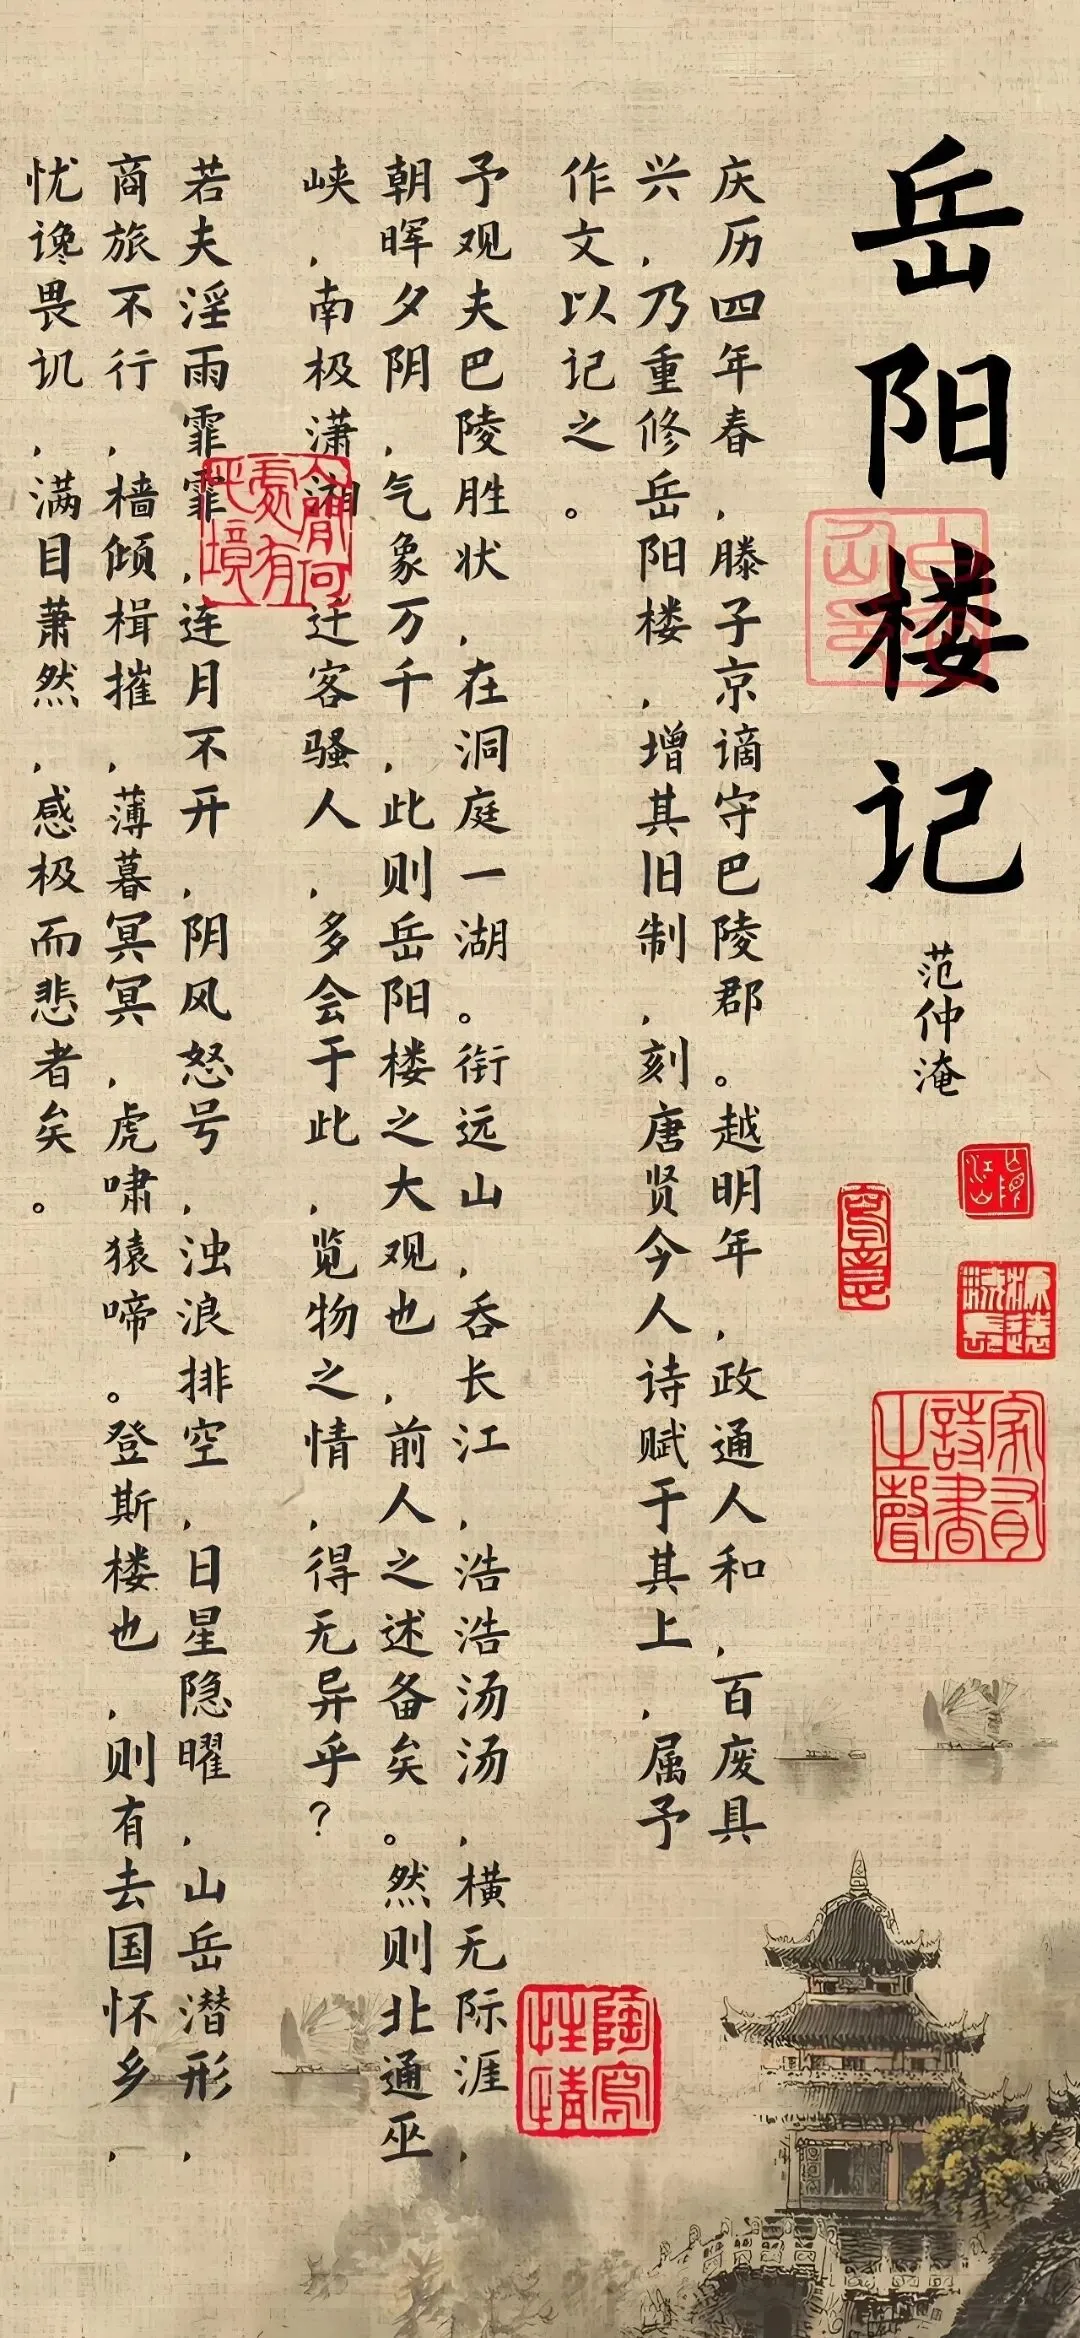 岳阳楼记
范仲淹
庆历四年春，滕子京谪守巴陵郡。越明年，政通人和，百废具
兴，乃重修岳阳楼，增其旧制，刻唐贤今人诗赋于其上，属予
作文以记之。
予观夫巴陵胜状，在洞庭一湖。衔远山，吞长江，浩浩汤汤，横无际涯，
朝晖夕阴，气象万千，此则岳阳楼之大观也，前人之述备矣。然则北通巫
峡，南极潇湘，迁客骚人，多会于此，览物之情，得无异乎？
若夫淫雨霏霏，连月不开，阴风怒号，浊浪排空，日星隐曜，山岳潜形，
商旅不行，樯倾楫摧，薄暮冥冥，虎啸猿啼。登斯楼也，则有去国怀乡，
忧谗畏讥，满目萧然，感极而悲者矣。
家有詩書之聲
陶寫性情
人間何處有此境